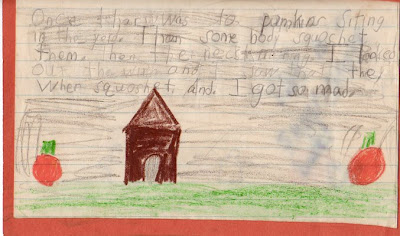 Once thair was to pumkins siting
in the yard. Then some body squashet
them. then the next day I looked
Out the window and I saw that they
When squashet, and I got so mad.